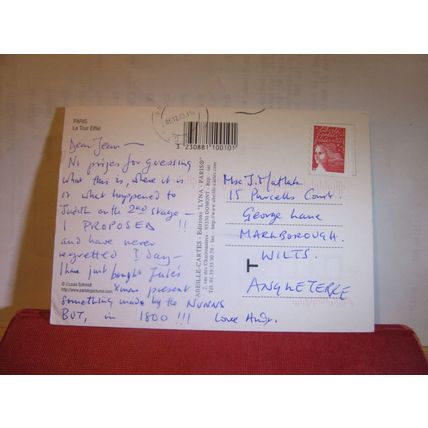 PARIS
La Tour Eiffel
Dear Jean –
No prizes for guessing
what this is, where it is
or what happened to
Judith on the 2nd stage –
I PROPOSED !!
and have never
regretted 1 day –
I have just bought Jude's
Xmas present
something made by the NUNNS
BUT, in 1800 !!! Love Andy.
© Louis Schmidt
ABEILLE-CARTES - Editions "LYNA - PARIS"
3 230881 100101
Mrs J. 
15 Purcells Court.
George Lane
MARLBOROUGH.
WILTS.
T
ANGLETERRE